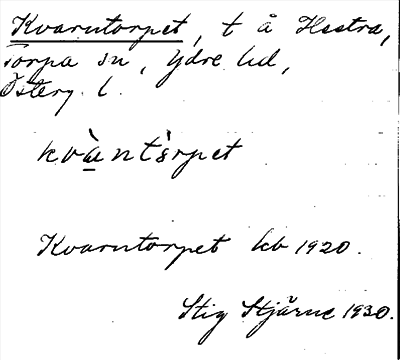 Kvarntorpet, t å Hestra,
Torpa sn, Ydre hd,
Österg. l.
kvàntòrpet
Kvarntorpet kb 1920.
Stig Stjärne 1930.